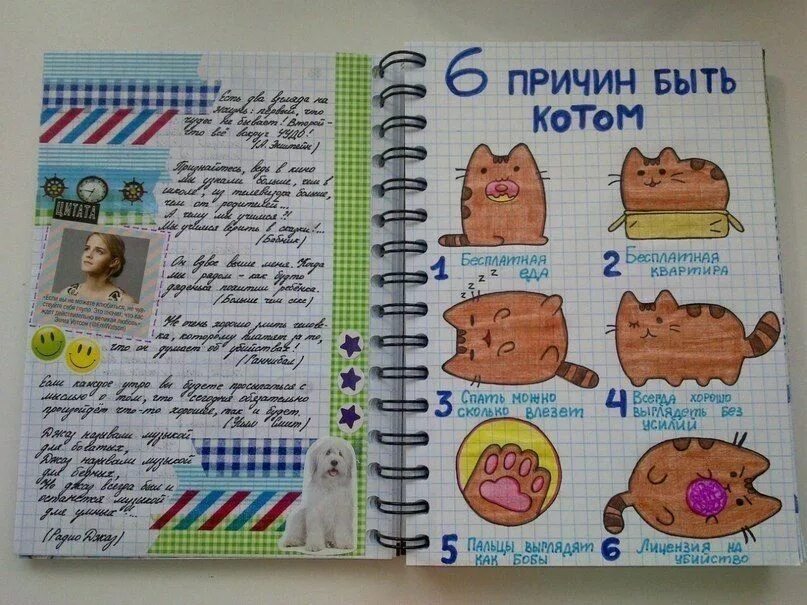 Есть два взгляда на
жизнь: первый, что
чудес не бывает! Второй -
что всё вокруг чудо!
(А. Энштейн)
Признайтесь, ведь в кино
мы узнали больше, чем в
школе, из телевизора больше,
чем от родителей...
А чему мы учимся?!
Мы учимся верить в сказки!...
(Бабник)
ЦИТАТА
Он вдвое выше меня. Когда
мы рядом - как будто
дяденька похитил ребёнка.
(Больше чем секс)
«Если вы не можете влюбиться, не чув-
ствуйте себя глупо. Это значит, что вас
ждёт действительно великая любовь».
Эмма Уотсон (@EmWatson)
Не очень хорошо бить челове-
ка, которому платят за то,
что он думает об убийствах!
(Ганнибал)
Если каждое утро вы будете просыпаться с
мыслью о том, что сегодня обязательно
произойдёт что-то хорошее, так и будет.
(Уилл Смит)
Джаз называли музыкой
для богатых,
Джаз называли музыкой
для бедных,
Но джаз всегда был и
останется музыкой
для умных!...
(Радио Джаз)
6 ПРИЧИН БЫТЬ
КОТОМ
1 Бесплатная
еда
2 Бесплатная
квартира
z z z z
3 Спать можно
сколько влезет
4 Всегда хорошо
выглядеть без
усилий
5 Пальцы выглядят
как бобы
6 Лицензия на
убийство